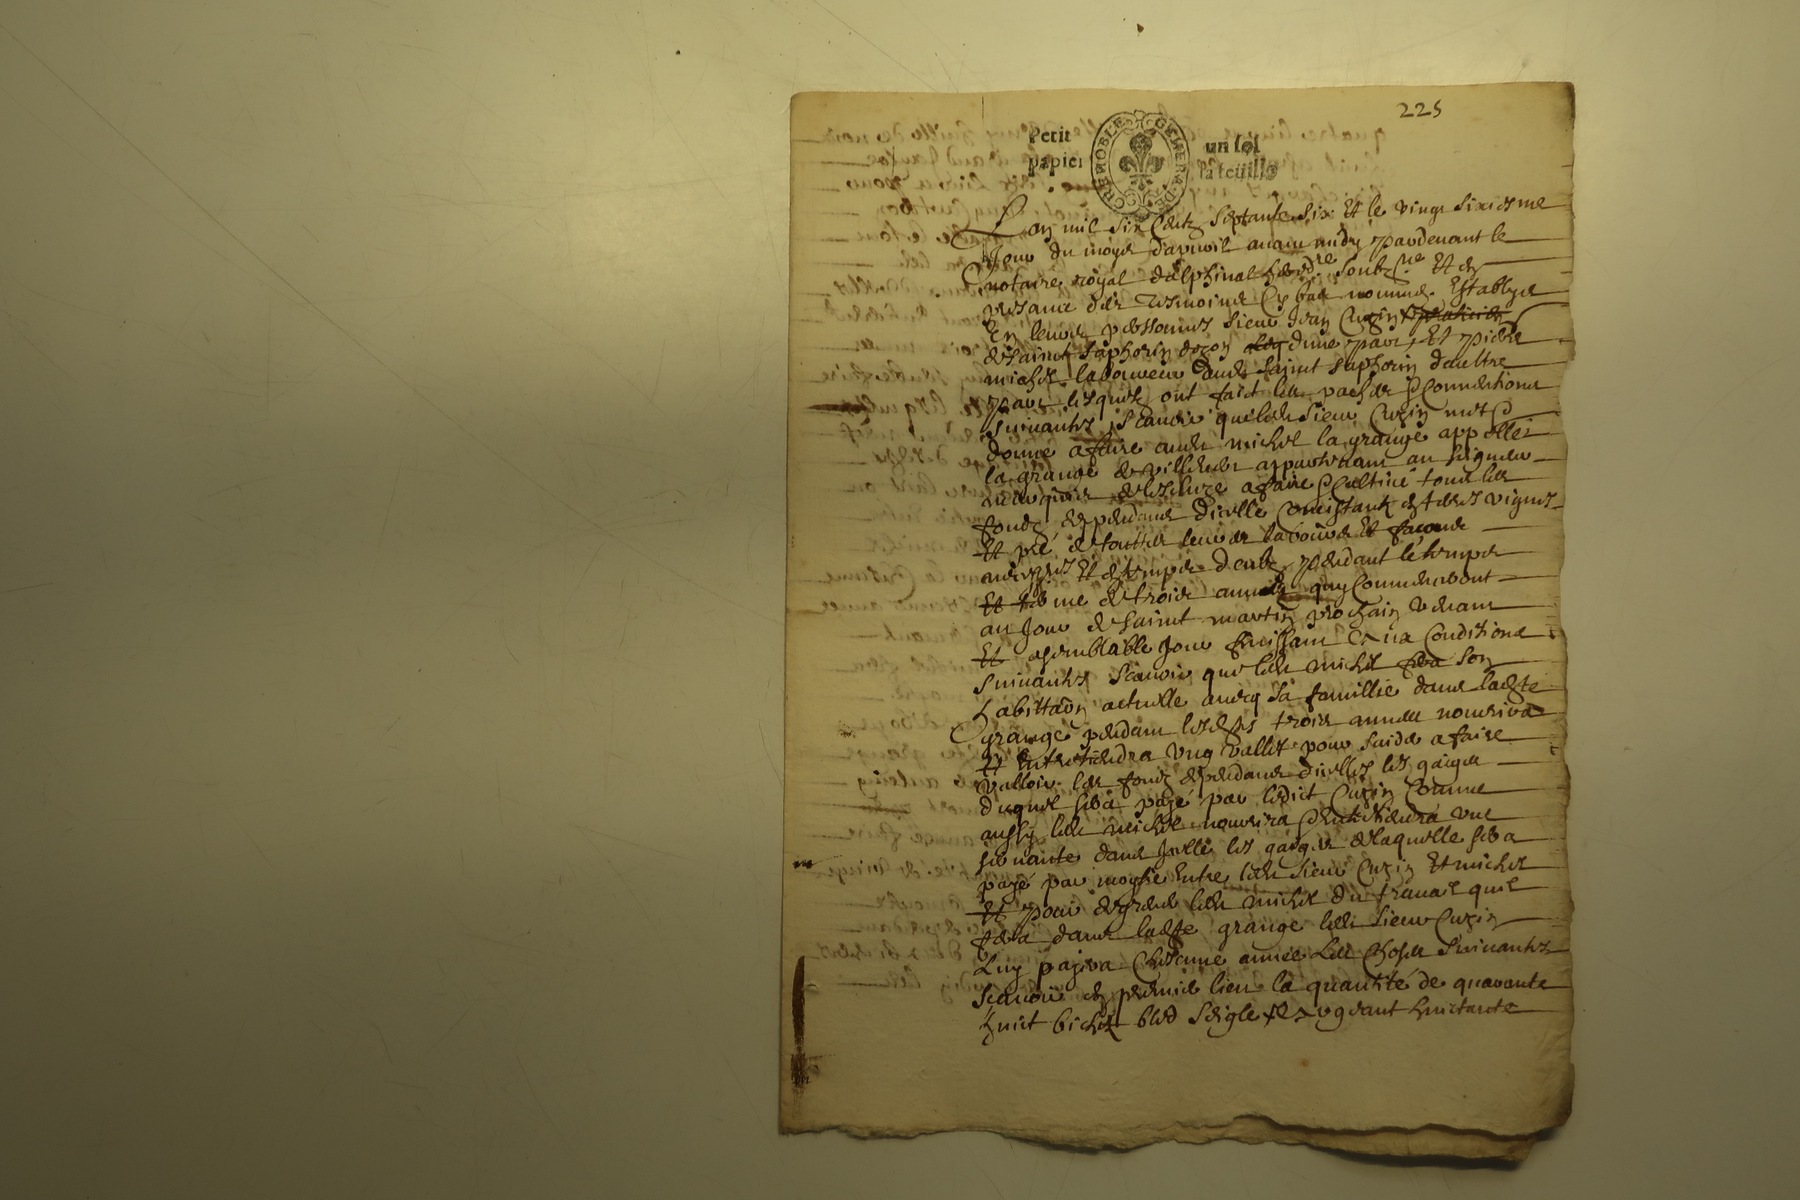 225
Petit papier
GENERA. DE GRENOBLE
un sol la feuille
Lan mil six centz septante six Et le vingt sixiesme
Jour du moys dapvril avant midy pardevant le
notaire royal delphinal hered.re soubz.ne Et en
presance des tesmoins cy bas nommes Establys
En leurs personnes sieur Jean Cuzin
de sainct saphorin dozon dune part, Et pierre
michel laboureur dud sainct saphorin daultre
part lesquelz ont faict les paches & Conventions
suivantes, scavoir que led sieur Cuzin met &
donne a faire aud michel la grange appellé
la grange de appartenant au seigneur
marquis a faire & Cultivé tous les
fondz dependans dicelle Consistantz en terres vignes
Et pré de touttes leurs labours Et facons
Et temps deubz pendant le temps
Et terme de trois annees quy Commenceront
au Jour de saint martin prochain venant
Et a semblable Jour finissant Conditions
suivantes scavoir que led michel fera son
habittaon actuelle avecq sa famillie dans ladte
grange pendant lesdtes trois annees nourrira
Et Entretiendra ung vallet pour laider a faire
valloir les fondz dependans dicelles les gaiges
duquel sera payé par ledict Cuzin Comme
aussy led michel nourrira & Entretiendra une
servante dans Jcelle les gaiges de laquelle sera
payé par moytie Entre led sieur Cuzin Et michel
Et pour led michel du travail quil
fera dans ladte grange led sieur Cuzin
Luy payera Chescune annee Les Choses suivantes
scavoir en premier lieu la quantité de quarante
huit bichetz bled seigle huictante